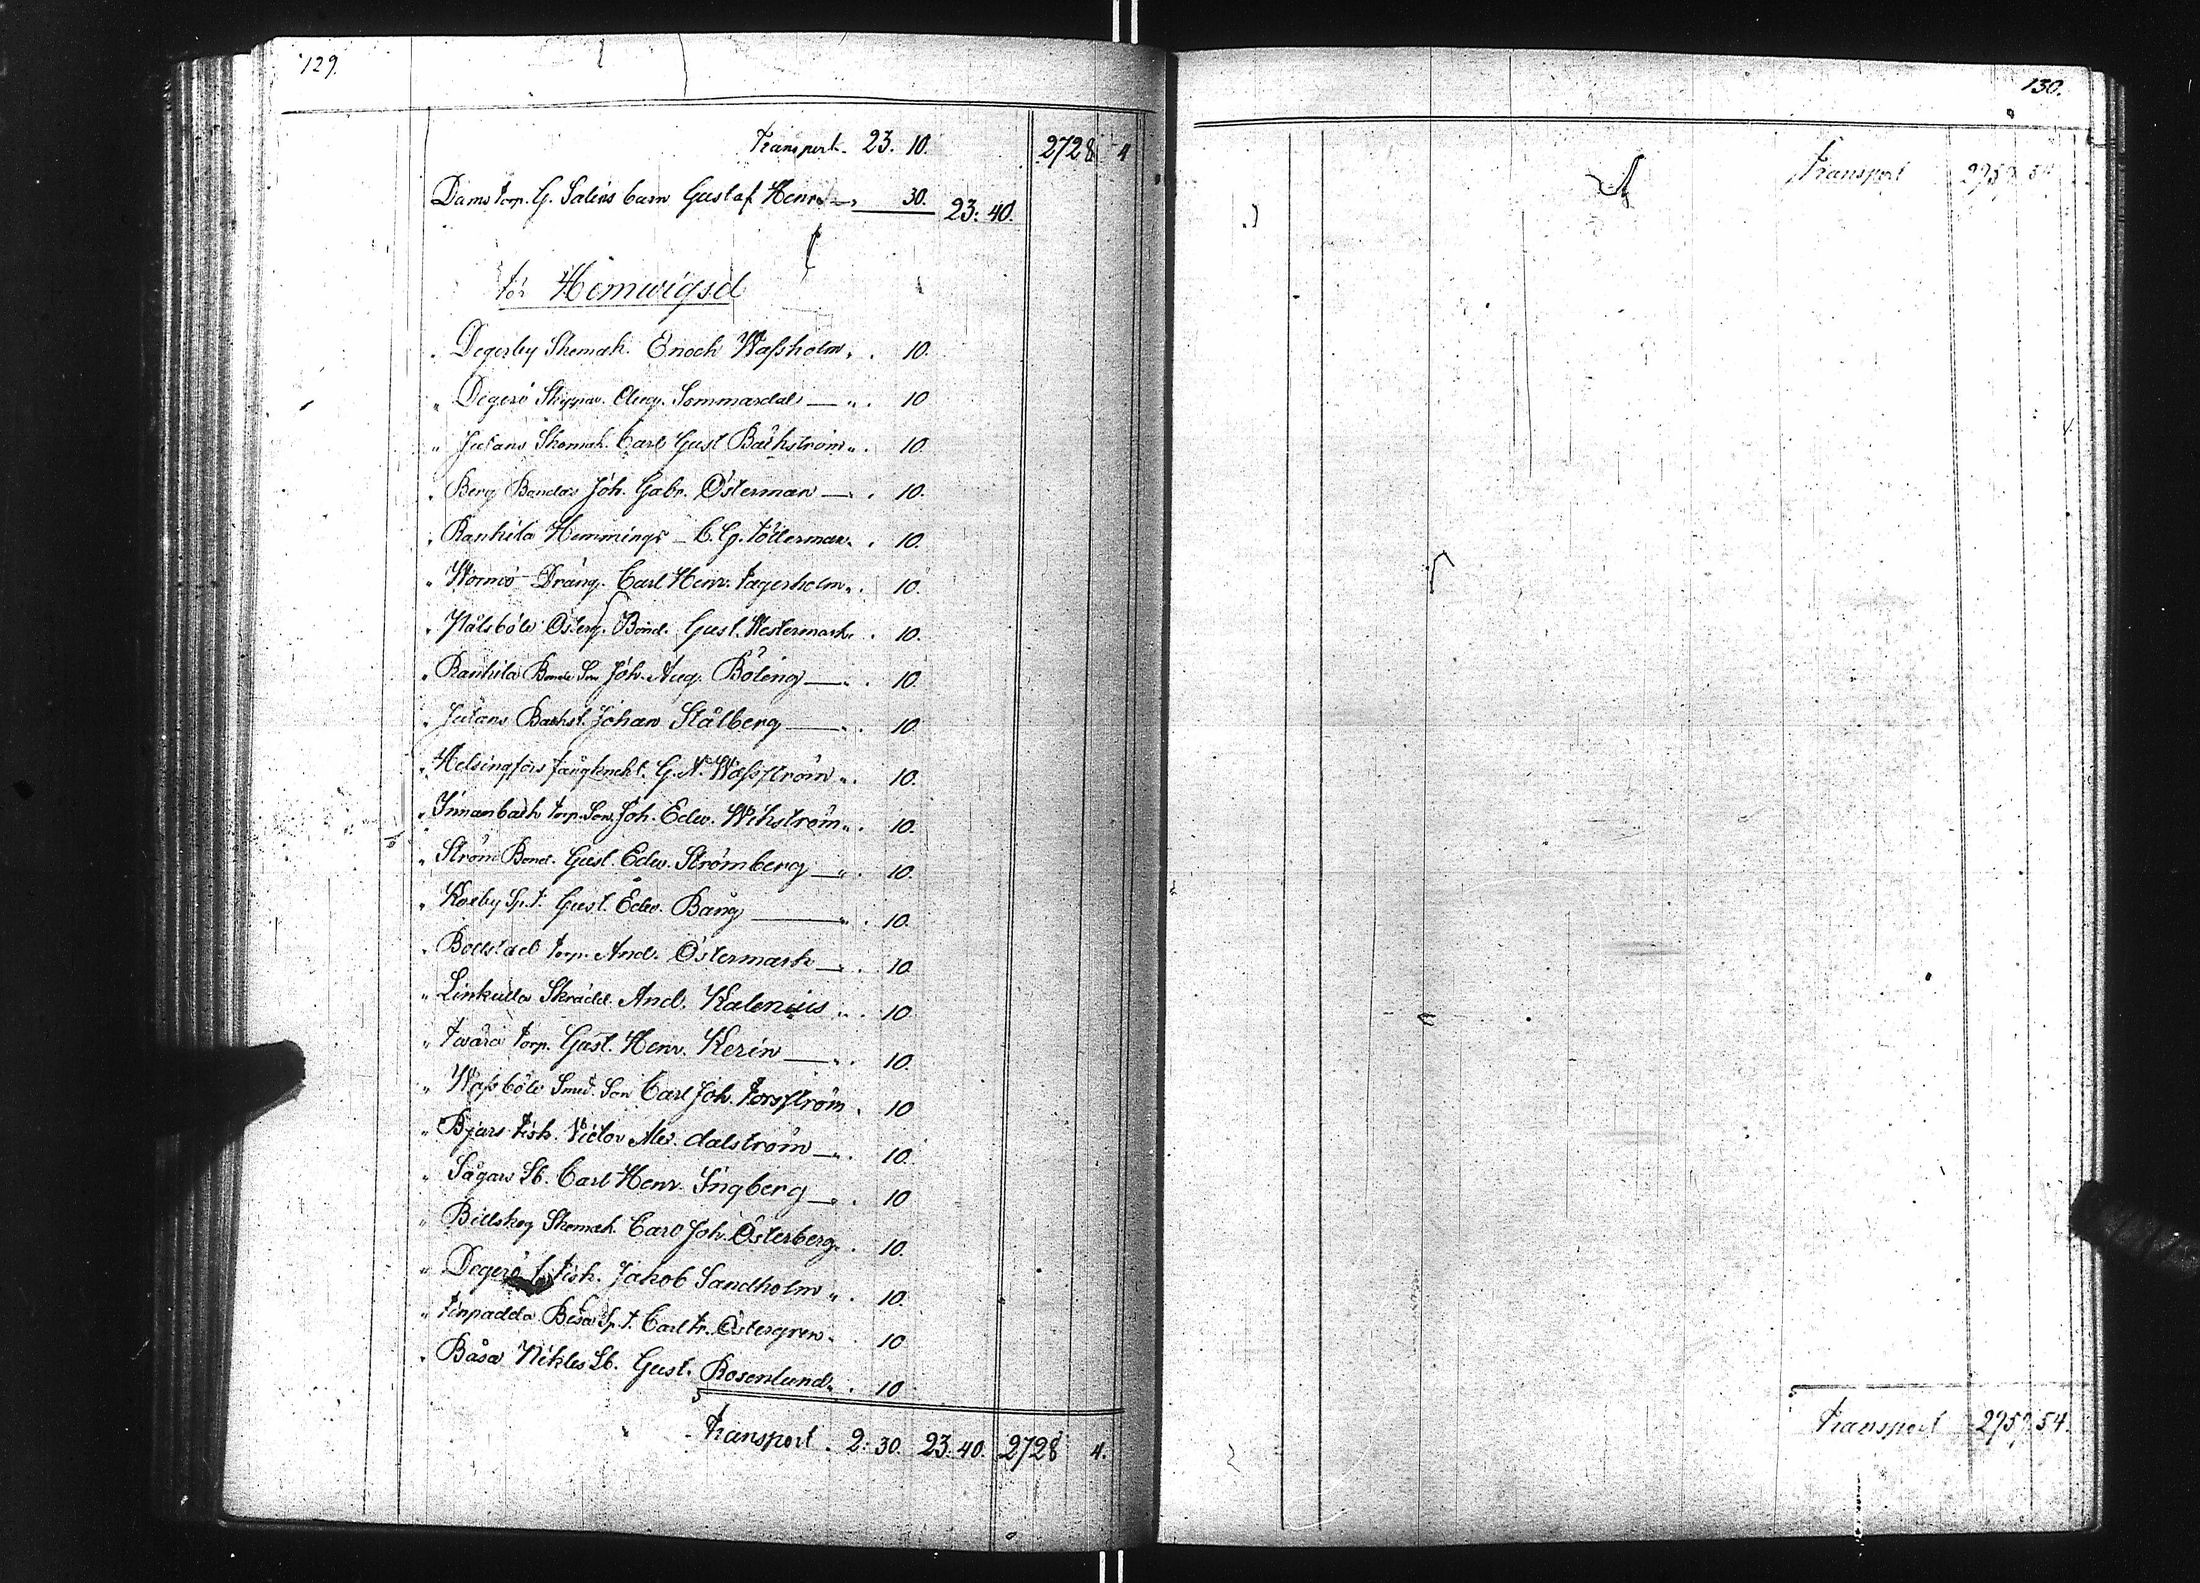 129.
Transport. 23. 10. 2728 4
Dams torp. G. Salins barn Gustaf Henr. " 30. 23: 40.
för Hemwigsel
" Degerby Skomak. Enoch Wassholm " . 10.
" Degerö Skeppar. Aug. Sommardal — " . 10
" Jutans Skomak. Carl Gust Bäckström " . 10.
" Berg Bondas Joh. Gabr. Österman — " . 10.
" Rankila Hemmings — C. G. Töllerman " . 10.
" Wormö Dräng. Carl Henr. Fagerholm " . 10.
" Österg. Bond. Gust. Westermark " . 10.
" Rankila Bonde Son Joh. Aug. Böling — " . 10.
" Jutans Backst. Johan Stålberg — " . 10.
" Helsingfors G. A. Wasström " . 10.
" Innanbäck torp. Son. Joh. Edw. Wikström " . 10.
" Ström Bond. Gust. Edw. Strömberg — " . 10.
" Korby Sp. t. Gust. Edw. Bang — " . 10.
" Bollstad torp. And. Östermark — " . 10
" Linkulla Skrädd. And. Kalenius " . 10
" torp. Gust. Henr. Kerin — " . 10.
" Wassböle Smed. Son Carl Joh. Forsström . 10
" Bjars Fisk. Victor Alex. dalström — " . 10.
" Sågars Sb. Carl Henr. Ingberg — " . 10
" Billskog Skomak. Carl Joh. Österberg " . 10.
" Degerö Fisk. Jakob Sandholm " . 10.
" Finpadda Sp. t. Carl Fr. Östergren " . 10
" Båsa Nikles Sb. Gust. Rosenlund " . 10
Transport . 2: 30. 23: 40. 2728 4.
130.
Transport 2757 54
Transport 2757 54.